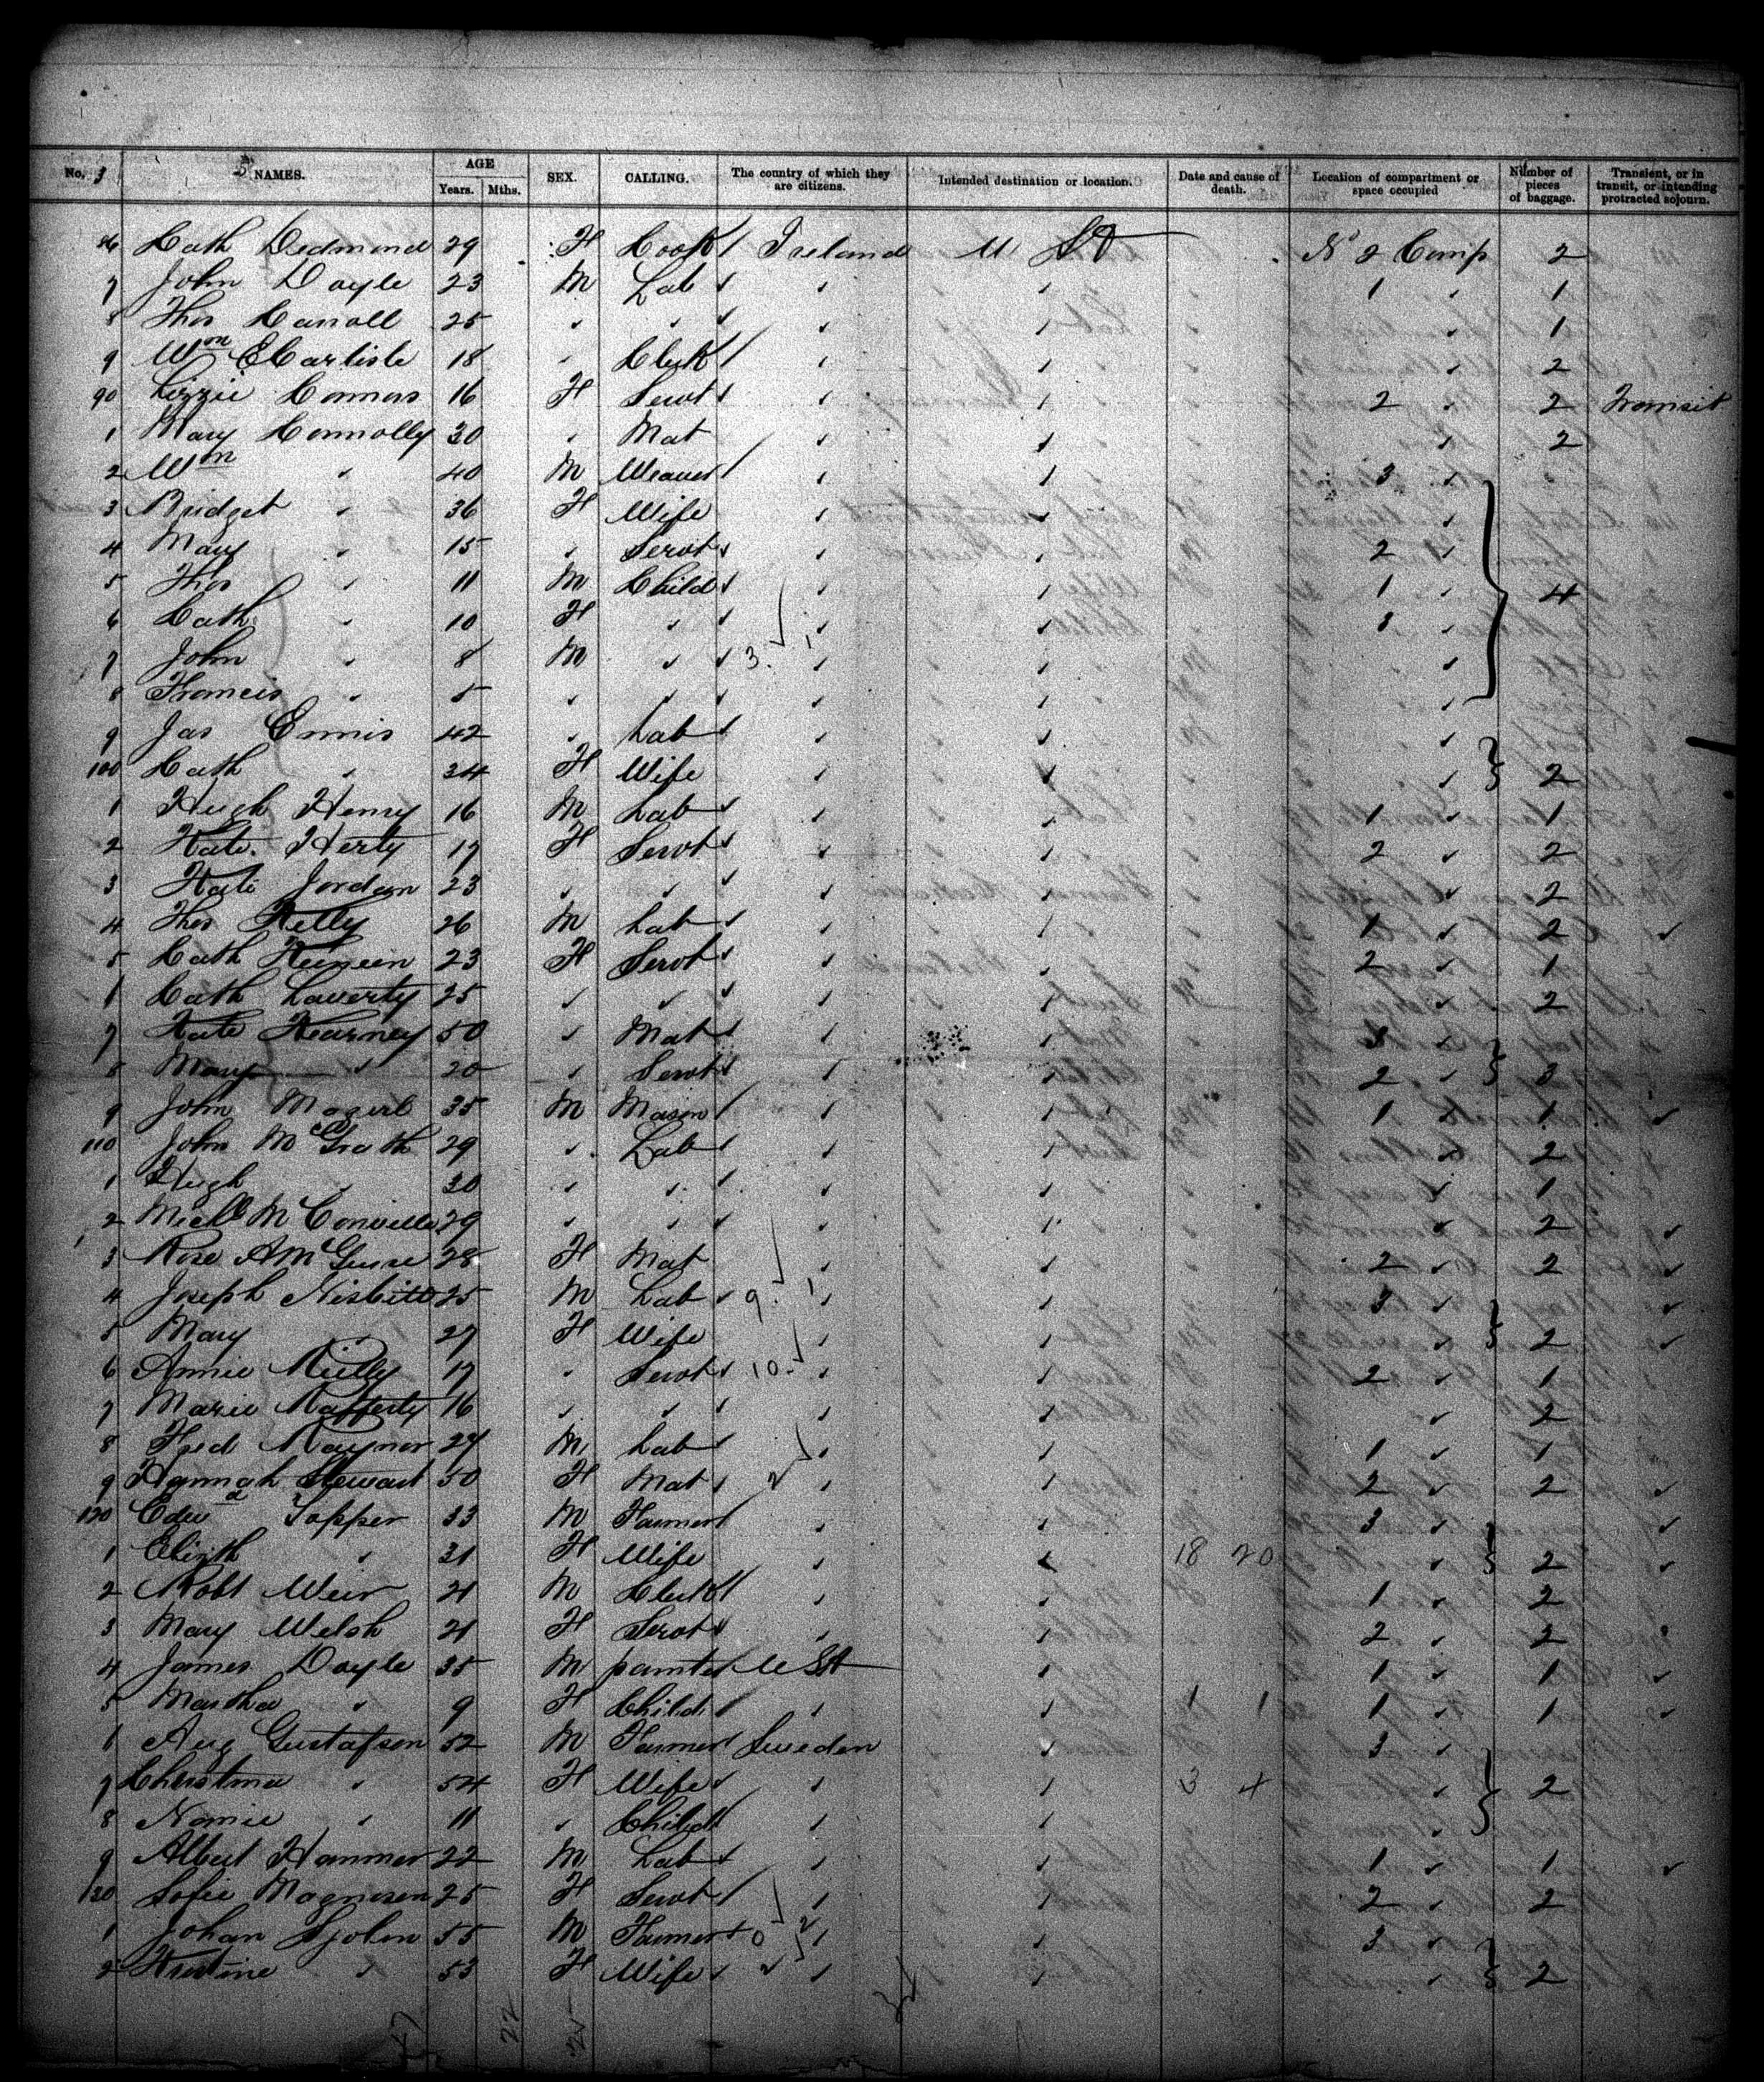 No. 3 NAMES. AGE Years. Mths. SEX. CALLING. The country of which they are citizens. Intended destination or location. Date and cause of death. Location of compartment or space occupied Number of pieces of baggage. Transient, or in transit, or intending protracted sojourn.
86 Cath Dedmond 29 F Cook Ireland U St No 2 Comp 2
7 John Doyle 23 M Lab " " 1 " 1
8 Thos Carroll 25 " " " " " 1
9 Wm E Carlisle 18 " Clerk " " 2
90 Lizzie Connors 16 F Servt " " 2 " 2 Transit
1 Mary Connolly 30 " Mat " " " 2
2 Wm " 40 M Weaver " " 3 "
3 Bridget " 36 F Wife " " "
4 Mary " 15 " Servt " " 2 "
5 Thos " 11 M Child " " 1 " 4
6 Cath " 10 F " " " 3 "
7 John " 8 M " 3 " " "
8 Francis " 5 " " " " "
9 Jas Ennis 42 " Lab " " "
100 Cath " 34 F Wife " " " 2
1 Hugh Henry 16 M Lab " " 1 " 1
2 Kate Herty 17 F Servt " " 2 " 2
3 Kate Jordan 23 " " " " " 2
4 Thos Kelly 26 M Lab " " 1 " 2 "
5 Cath 23 F Servt " " 2 " 1
6 Cath Laverty 25 " " " " " 2
7 Kate Kearney 50 " Mat " " 3 "
8 Mary " 20 " Servt " " 2 " 3
9 John 35 M Mason " " 1 " 1 "
110 John McGrath 29 " Lab " " " 2
1 Hugh " 30 " " " " " 1
2 Michl McConville 29 " " " " " 2 "
3 Rose A McGuire 28 F Mat " " 2 " 2 "
4 Joseph Nisbitt 25 M Lab 9 1 " " 3 " "
5 Mary " 27 F Wife " " " 2 "
6 Annie Reilly 17 " Servt 10 " " 2 " 1
7 Marie Rafferty 16 " " " " " 2
8 Fred Raynor 24 M Lab " " 1 " 1
9 Hannah Stewart 50 F Mat 2 " " 2 " 2 "
120 Edwd Topper 33 M Farmer " " 3 " "
1 Elizth " 31 F Wife " " 18 20 " 2 "
2 Robt Weir 21 M Clerk " " 1 " 2
3 Mary Welsh 21 F Servt " " 2 " 2 "
4 James Doyle 35 M painter U St " 1 " 1 "
5 Martha " 9 F Child " " 1 1 1 " 1 "
6 Aug Gustafson 52 M Farmer Sweden " 3 "
7 Christina " 54 F Wife " " 3 4 " 2
8 Nanie " 11 " Child " " "
9 Albert Hammer 22 M Lab " " 1 " 1 "
130 Sofie Magnusen 25 F Servt " " 2 " 2
1 Johan Sjolin 55 M Farmer 0 2 " " 3 "
2 Kristine " 53 F Wife " " " 2
22